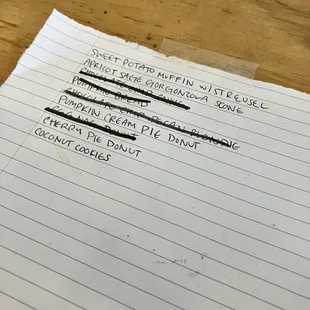 SWEET POTATO MUFFIN W/STREUSEL
APRICOT SAGE GORGONZOLA SCONE
PUMPKIN BREAD
PUMPKIN CREAM PIE DONUT
CHERRY PIE DONUT
COCONUT COOKIES